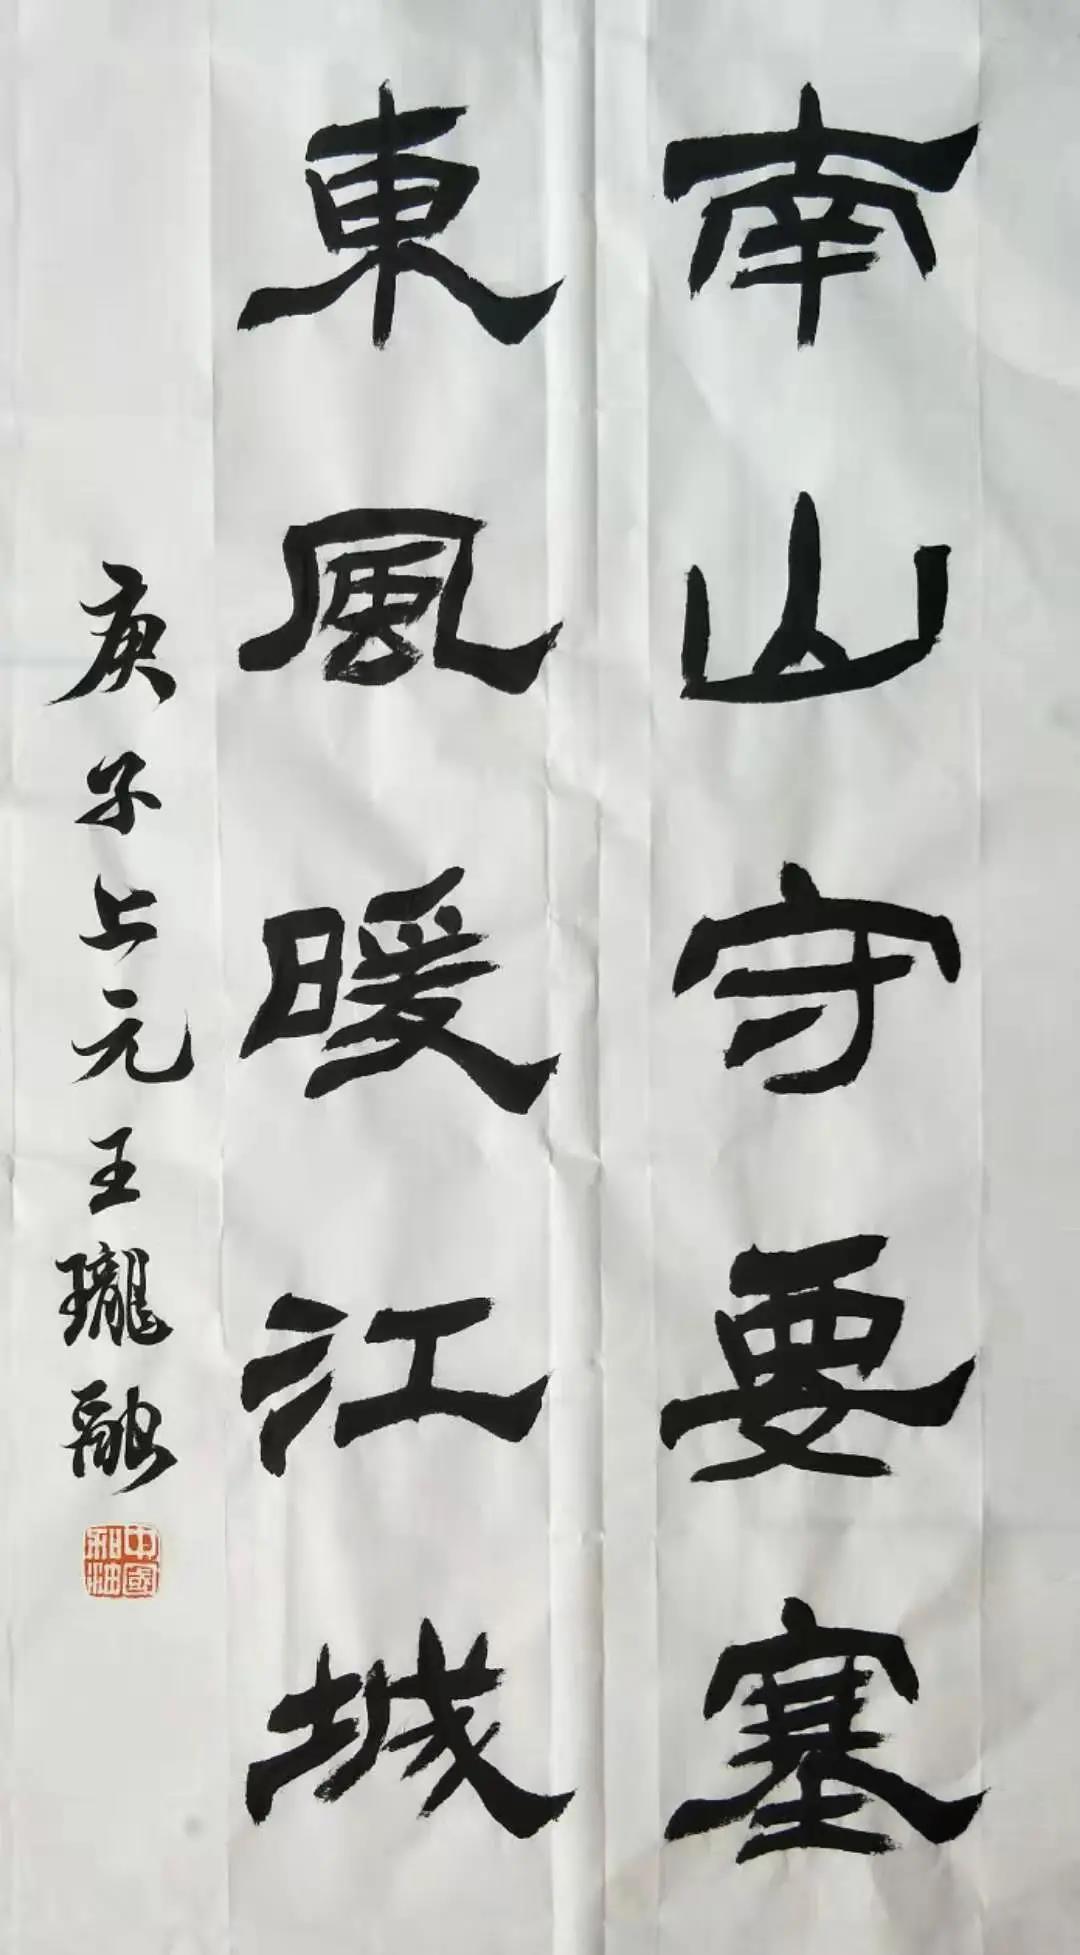 南山守要塞
東風暖江城
庚子上元王瓏融
中國